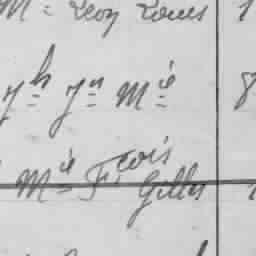 M = Leon Louis 1
Jh Jn Mie 8
Mie Fcois Gilles